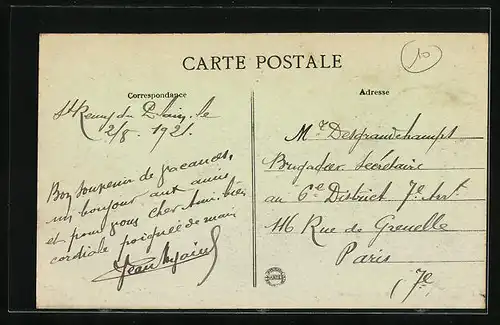 CARTE POSTALE
10
Correspondance
Adresse
St Remy du Plain, le
2/8 1921.
Bon souvenir de vacances,
un bonjour aux amis
et pour vous cher Ami, bien
cordiale poignée de main
Mr Desgrandchamps
Brigadier Secrétaire
au 6e District 7e Art
116 Rue de Grenelle
Paris
(7e)